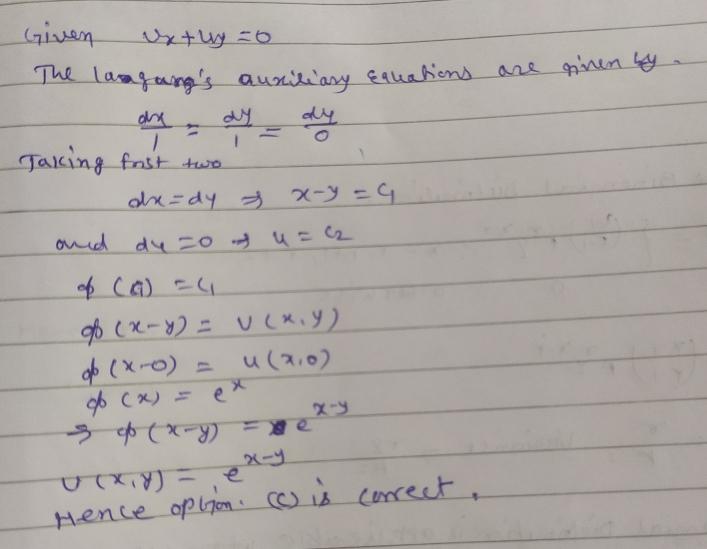 Given Ux+Uy=0
The langang's auxiliary equations are given by.
dx/1 = dy/1 = dy/0
Taking first two
dx=dy ⇒ x-y = C1
and du=0 ⇒ u = C2
φ (C1) = C1
φ (x-y) = U(x,y)
φ (x-0) = u(x,0)
φ (x) = e^x
⇒ φ (x-y) = e^x-y
U(x,y) = e^x-y
Hence option. (C) is correct.